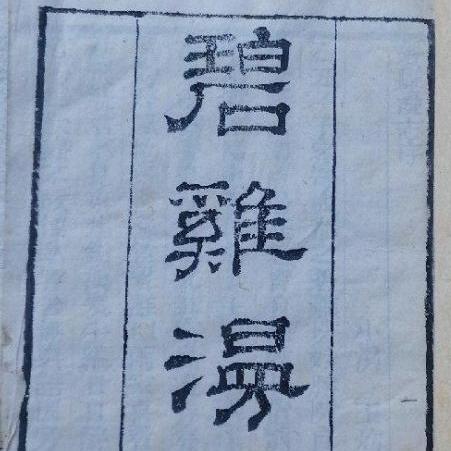 碧雞漫